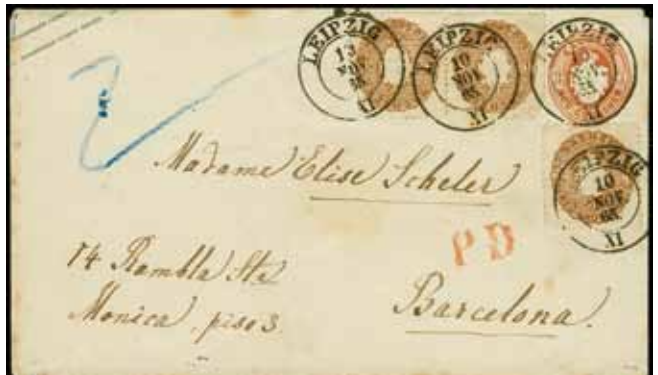 LEIPZIG
13
NOV
XI
LEIPZIG
10
NOV
65
XI
LEIPZIG
XI
LEIPZIG
10
NOV
65
XI
2
Madame Elise Scheler
PD
74 Rambla Sta
Monica, piso 3.
Barcelona.